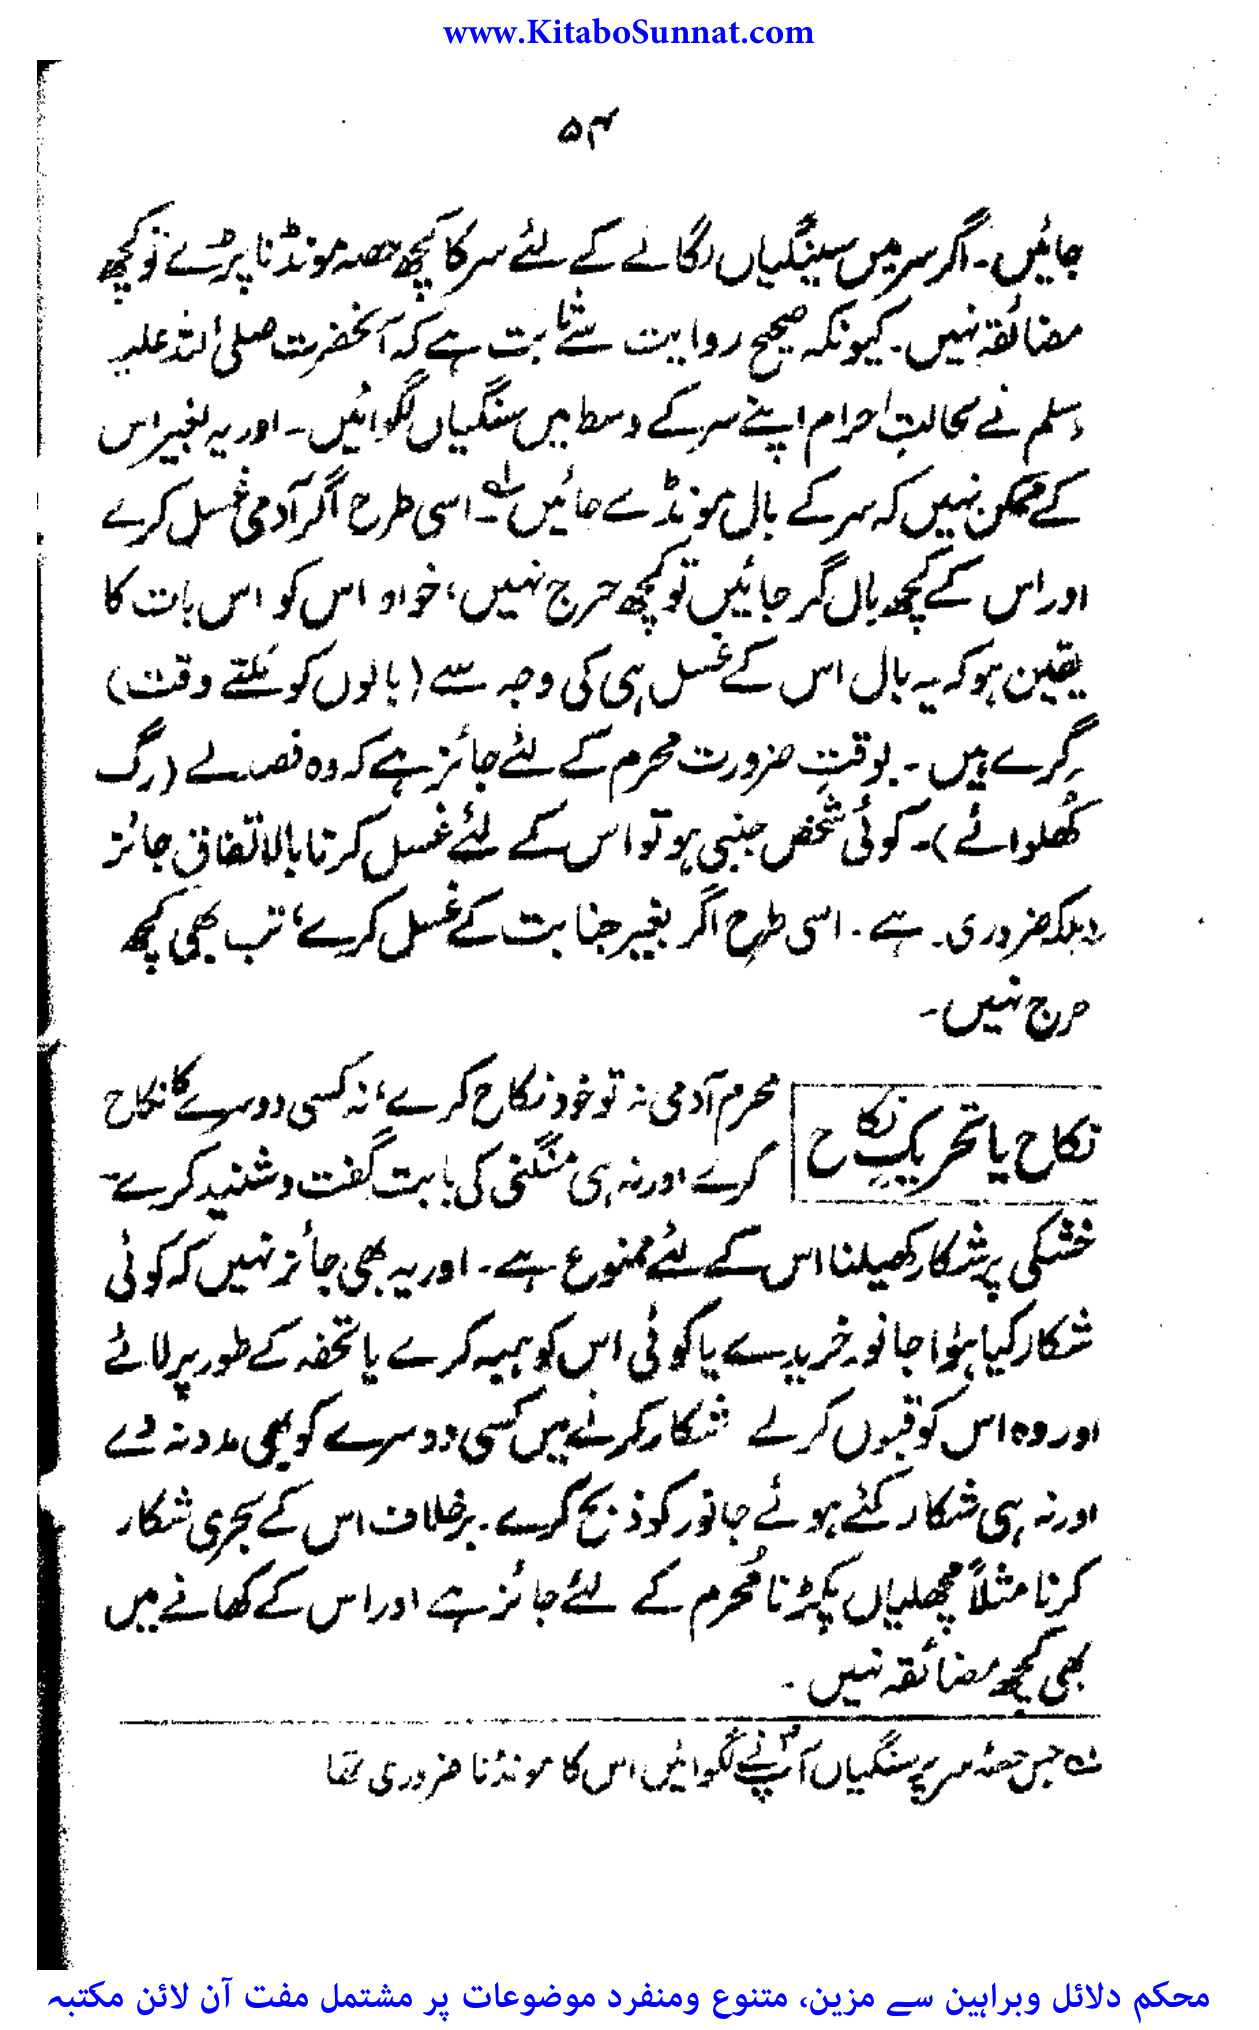 www.KitaboSunnat.com
۵۴
جائیں۔ اگر سر میں سینگیاں لگانے کے لئے سر کا کچھ حصہ مونڈنا پڑے تو کچھ
مضائقہ نہیں۔ کیونکہ صحیح روایت سے ثابت ہے کہ آنحضرت صلی اللہ علیہ
وسلم نے بحالتِ احرام اپنے سر کے وسط میں سنگیاں لگوائیں۔ اور یہ بغیر اس
کے ممکن نہیں کہ سر کے بال مونڈے جائیں لہ۔ اسی طرح اگر آدمی غسل کرے
اور اس کے کچھ بال گر جائیں تو کچھ حرج نہیں، خواہ اس کو اس بات کا
یقین ہو کہ یہ بال اس کے غسل ہی کی وجہ سے (بالوں کو مَلتے وقت)
گِرے ہیں۔ بوقتِ ضرورت محرم کے لئے جائز ہے کہ وہ فصد لے (رگ
کُھلوائے)۔ کوئی شخص جنبی ہو تو اس کے لئے غسل کرنا بالاتفاق جائز
(بلکہ ضروری۔ ہے۔ اسی طرح اگر بغیر جنابت کے غسل کرے، تب بھی کچھ
حرج نہیں۔
نکاح یا تحریکِ نکاح
محرم آدمی نہ تو خود نکاح کرے، نہ کسی دوسرے کا نکاح
کرے اور نہ ہی منگنی کی بابت گفت و شنید کرے۔
خشکی پر شکار کھیلنا اس کے لئے ممنوع ہے۔ اور یہ بھی جائز نہیں کہ کوئی
شکار کیا ہؤا جانور خریدے یا کوئی اس کو ہبہ کرے یا تحفہ کے طور پر لائے
اور وہ اس کو قبول کرلے شکار کرنے میں کسی دوسرے کو بھی مدد نہ دے
اور نہ ہی شکار کئے ہوئے جانور کو ذبح کرے۔ برخلاف اس کے بحری شکار
کرنا مثلاً مچھلیاں پکڑنا مُحرم کے لئے جائز ہے اور اس کے کھانے میں
بھی کچھ مضائقہ نہیں۔
لہ جس حصّہ سر پر سنگیاں آپ نے لگوائیں اس کا مونڈنا ضروری تھا
محکم دلائل وبراہین سے مزین، متنوع ومنفرد موضوعات پر مشتمل مفت آن لائن مکتبہ